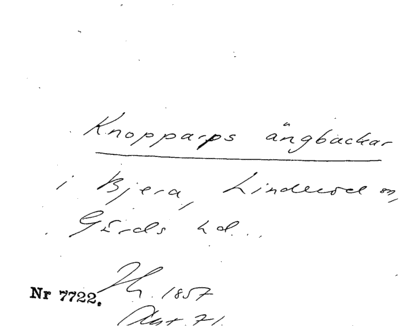 Knopparps ängbackar
i Bjera, Linderöd sn,
Gärds hd.
Nr 7722. Hz. 1857
Akt. 71.